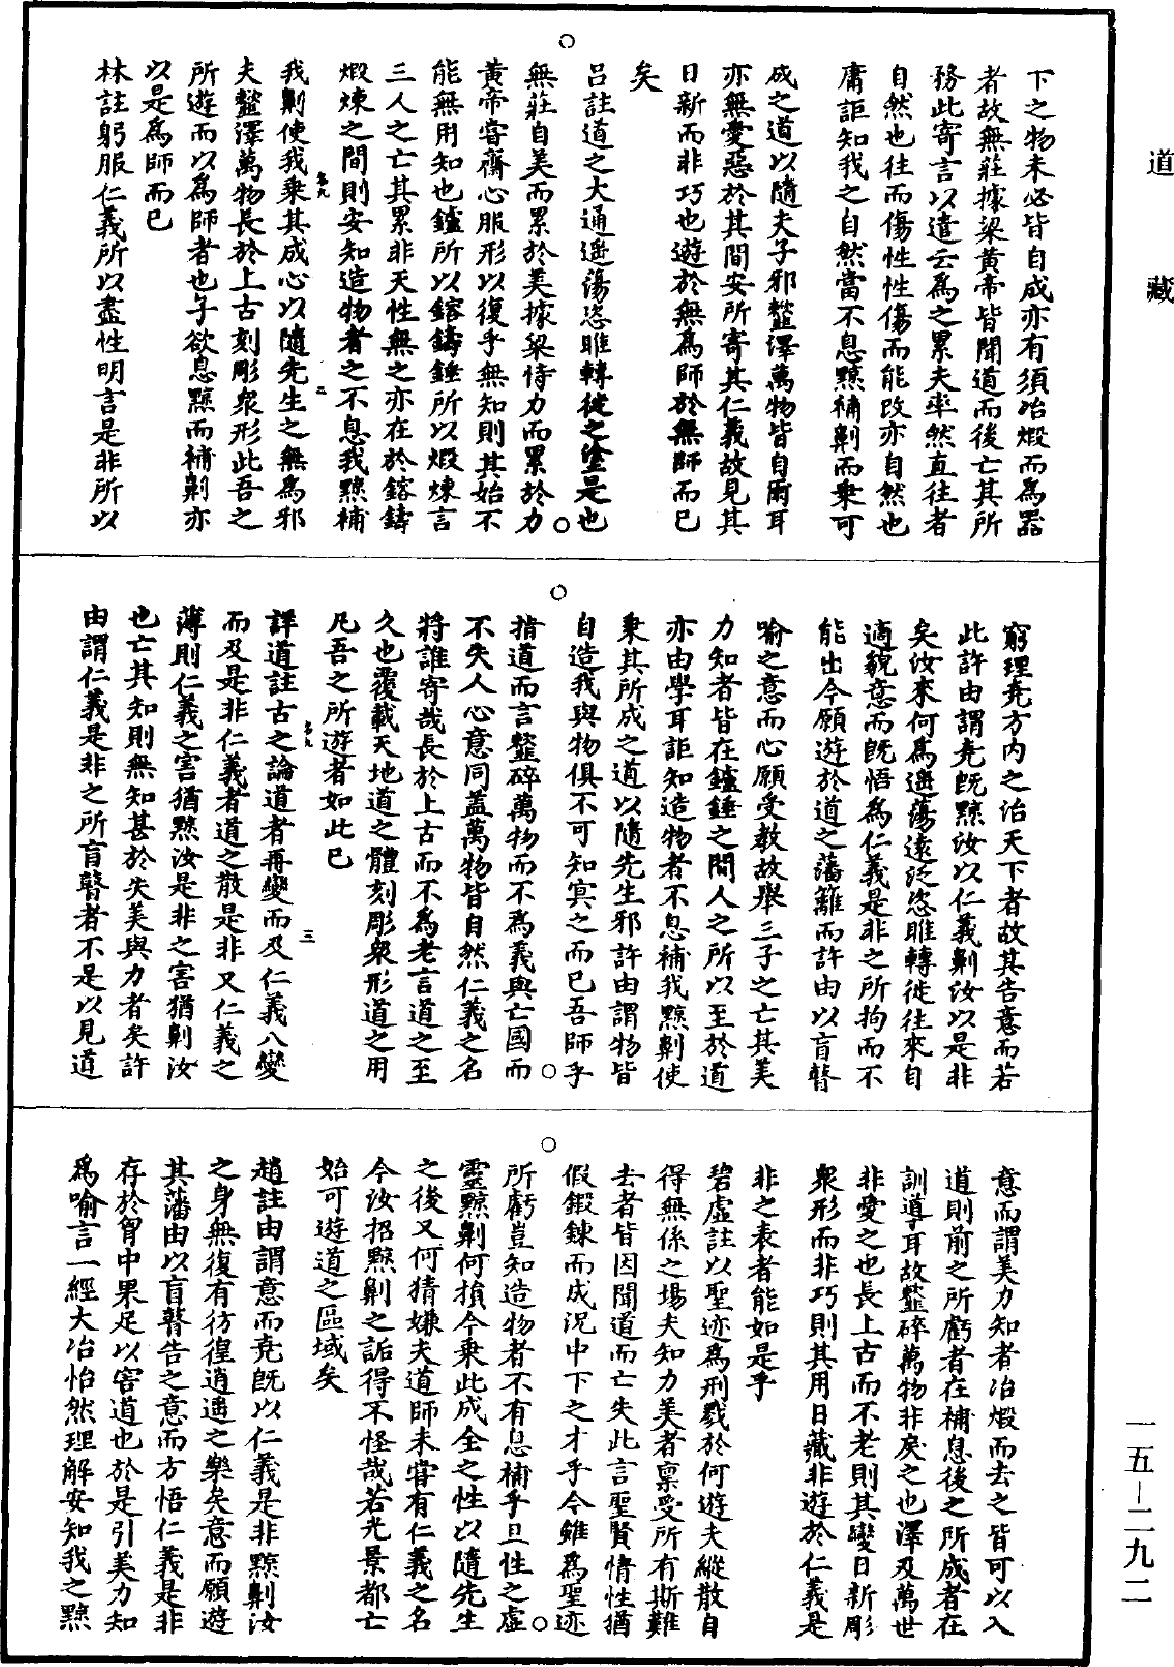 道藏
下之物未必皆自成亦有須冶煅而為器
者故無莊據梁黃帝皆聞道而後亡其所
務此寄言以遣云為之累夫率然直往者
自然也往而傷性性傷而能改亦自然也
庸詎知我之自然當不息黥補劓而乗可
成之道以隨夫子邪䪠澤萬物皆自爾耳
亦無愛惡於其間安所寄其仁義故見其
日新而非巧也遊於無為師於無師而已
矣
呂註道之大通遥蕩恣睢轉徙之塗是也
無莊自美而累於美據梁恃力而累於力
黃帝甞齋心服形以復乎無知則其始不
能無用知也鑪所以鎔鑄錘所以煆煉言
三人之亡其累非天性無之亦在於鎔鑄
煆煉之間則安知造物者之不息我黥補
我劓使我乗其成心以隨先生之無為邪
夫䪠澤萬物長於上古刻彫衆形此吾之
所遊而以為師者也子欲息黥而補劓亦
以是為師而已
林註躬服仁義所以盡性明言是非所以
窮理堯方内之治天下者故其告意而若
此許由謂堯既黥汝以仁義劓汝以是非
矣汝來何為遥蕩逺泛恣睢轉徙往來自
適貌意而既悟為仁義是非之所拘而不
能出今願遊於道之藩籬而許由以盲瞽
喻之意而心願受教故舉三子之亡其美
力知者皆在鑪錘之間人之所以至於道
亦由學耳詎知造物者不息補我黥劓使
乗其所成之道以隨先生邪許由謂物皆
自造我與物俱不可知㝠之而已吾師乎
指道而言䪠碎萬物而不為義與亡國而
不失人心意同蓋萬物皆自然仁義之名
將誰寄哉長於上古而不為老言道之至
久也覆載天地道之體刻彫衆形道之用
凡吾之所遊者如此已
詳道註古之論道者再變而及仁義八變
而及是非仁義者道之散是非又仁義之
薄則仁義之害猶黥汝是非之害猶劓汝
也亡其知則無知甚於失美與力者矣許
由謂仁義是非之所盲瞽者不是以見道
意而謂美力知者冶煆而去之皆可以入
道則前之所虧者在補息後之所成者在
訓導耳故䪠碎萬物非戾之也澤及萬世
非愛之也長上古而不老則其變日新彫
衆形而非巧則其用日藏非遊於仁義是
非之表者能如是乎
碧虛註以聖迹為刑戮於何遊夫縱散自
得無係之場夫知力美者禀受所有斯難
去者皆因聞道而亡失此言聖賢情性猶
假鍛鍊而成況中下之才乎今雖為聖迹
所虧豈知造物者不有息補乎且性之虛
靈黥劓何損今乗此成全之性以隨先生
之後又何猜嫌夫道師未甞有仁義之名
今汝招黥劓之詬得不怪哉若光景都亡
始可遊道之區域矣
趙註由謂意而堯既以仁義是非黥劓汝
之身無復有彷徨逍遥之樂矣意而願遊
其藩由以盲瞽告之意而方悟仁義是非
存於胷中果足以害道也於是引美力知
為喻言一經大冶怡然理解安知我之黥
一五—二九二